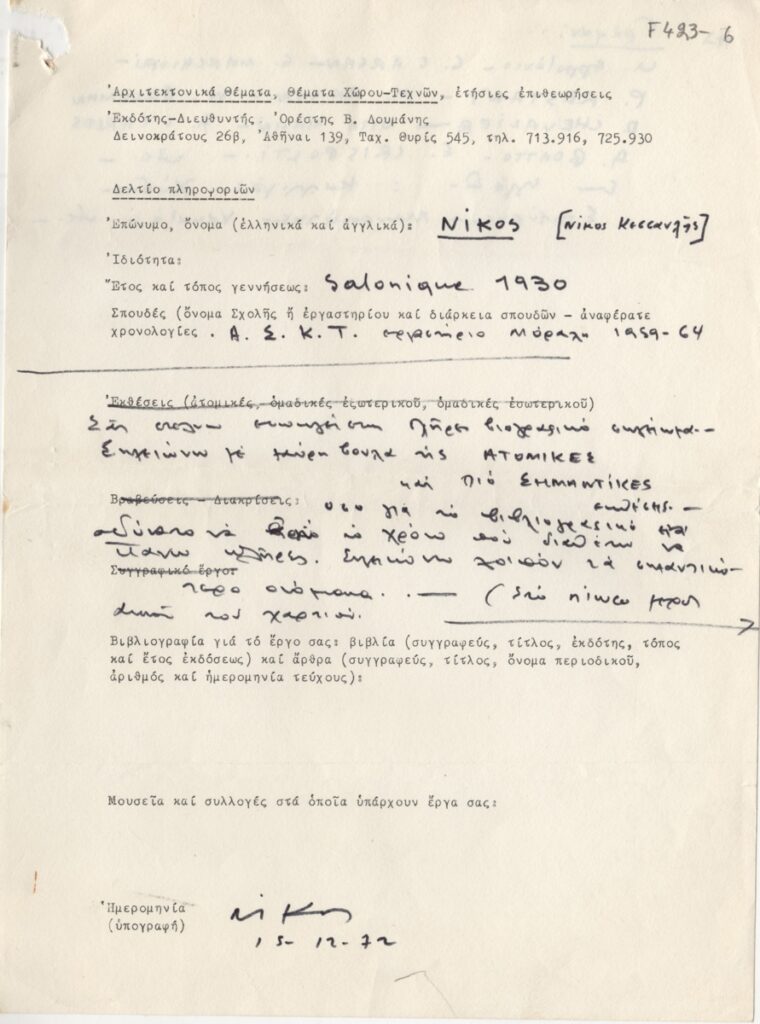 F423-6
Ἀρχιτεκτονικά Θέματα, Θέματα Χώρου-Τεχνῶν, ἐτήσιες ἐπιθεωρήσεις
Ἐκδότης-Διευθυντής Ὀρέστης Β. Δουμάνης
Δεινοκράτους 26β, Ἀθῆναι 139, Ταχ. Θυρίς 545, τηλ. 713.916, 725.930
Δελτίο πληροφοριῶν
Ἐπώνυμο, ὄνομα (ἑλληνικά καί ἀγγλικά): Νίκος [Νίκος Κεσσανλῆς]
Ἰδιότητα:
Ἔτος καί τόπος γεννήσεως: Salonique 1930
Σπουδές (ὄνομα Σχολῆς ἤ ἐργαστηρίου καί διάρκεια σπουδῶν - ἀναφέρατε
χρονολογίες. Α. Σ. Κ. Τ. εργαστήριο Μόραλη 1959-64
Ἐκθέσεις (ἀτομικές, ὁμαδικές ἐξωτερικοῦ, ὁμαδικές ἐσωτερικοῦ)
Σᾶς στέλνω πλῆρες βιογραφικό σημείωμα.-
Σημειώνω μέ μαύρη βούλα τίς ΑΤΟΜΙΚΕΣ
καί πιό ΣΗΜΑΝΤΙΚΕΣ
Βραβεύσεις - Διακρίσεις: οσο γιά τό βιβλιογραφικό
ἀδύνατο νά βρῶ τό χρόνο πού
Σημειώνω λοιπόν τά σημαντικό-
Συγγραφικό ἔργο:
τερα ονόματα. . — (Στό πίσω μέρος
τοῦ χαρτιοῦ.
Βιβλιογραφία γιά τό ἔργο σας: βιβλία (συγγραφεύς, τίτλος, ἐκδότης, τόπος
καί ἔτος ἐκδόσεως) καί ἄρθρα (συγγραφεύς, τίτλος, ὄνομα περιοδικοῦ,
ἀριθμός καί ἡμερομηνία τεύχους):
Μουσεῖα καί συλλογές στά ὁποῖα ὑπάρχουν ἔργα σας:
Ἡμερομηνία Νίκος
(ὑπογραφή) 15-12-72